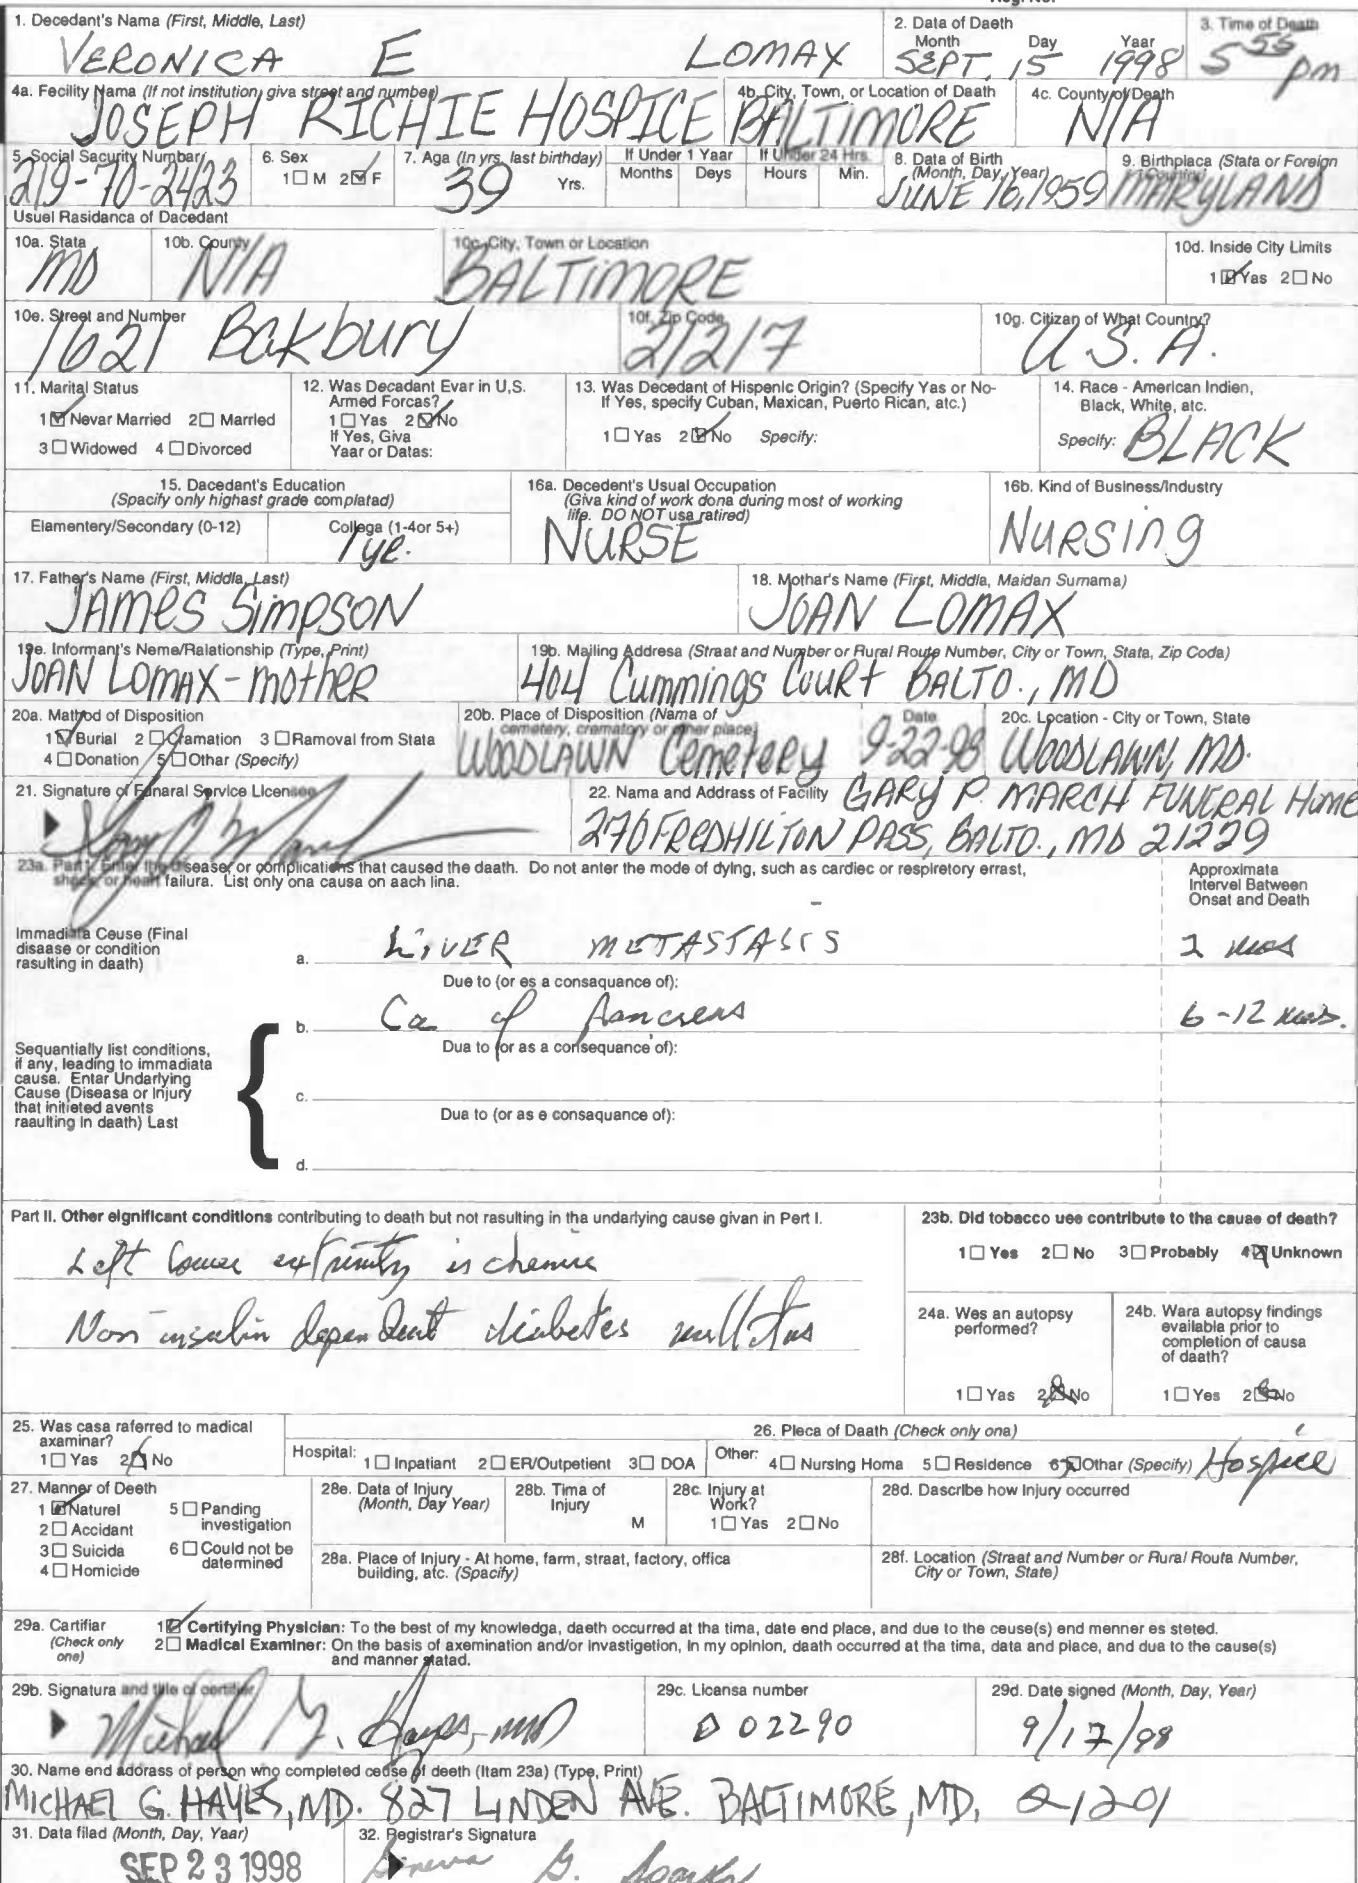 1. Decedant's Name (First, Middle, Last)
VERONICA E LOMAX
2. Data of Daeth
Month Day Yaar
SEPT. 15 1998
3. Time of Death
5 55 pm
4a. Fecility Nama (If not institution, giva street and number)
JOSEPH RICHIE HOSPICE
4b. City, Town, or Location of Daath
BALTIMORE
4c. County of Death
N/A
5. Social Sacurity Number
219-70-2423
6. Sex
1☐ M 2☑ F
7. Aga (In yrs. last birthday)
39 Yrs.
If Under 1 Year
Months Deys
If Under 24 Hrs.
Hours Min.
8. Data of Birth
(Month, Day, Year)
JUNE 16, 1959
9. Birthplaca (Stata or Foreign
Country)
MARYLAND
Usuel Rasidanca of Dacedant
10a. Stata
MD
10b. County
N/A
10c. City, Town or Location
BALTIMORE
10d. Inside City Limits
1☑ Yas 2☐ No
10e. Street and Number
1621 Bakbury
10f. Zip Code
21217
10g. Citizan of What Country?
U.S.A.
11. Marital Status
1☑ Nevar Married 2☐ Married
3☐ Widowed 4☐ Divorced
12. Was Decadant Evar in U.S.
Armed Forcas?
1☐ Yas 2☑ No
If Yes, Giva
Yaar or Datas:
13. Was Decedant of Hispenic Origin? (Specify Yas or No-
If Yes, specify Cuban, Maxican, Puerto Rican, atc.)
1☐ Yas 2☑ No Specify:
14. Race - American Indien,
Black, White, atc.
Specify: BLACK
15. Dacedant's Education
(Spacify only highast grade complatad)
Elamentery/Secondary (0-12)
Collega (1-4or 5+)
1 yr.
16a. Decedent's Usual Occupation
(Giva kind of work dona during most of working
life. DO NOT usa ratired)
NURSE
16b. Kind of Businass/Industry
NURSing
17. Fathar's Name (First, Middla, Last)
JAMES SimpSON
18. Mothar's Name (First, Middla, Maidan Surnama)
JOAN LOMAX
19e. Informant's Neme/Relationship (Type, Print)
JOAN LOMAX - mother
19b. Mailing Addresa (Straat and Number or Rural Routa Number, City or Town, Stata, Zip Coda)
404 Cummings Court BALTO., MD
20a. Mathod of Disposition
1☑ Burial 2☐ Cramation 3☐ Ramoval from Stata
4☐ Donation 5☐ Othar (Specify)
20b. Place of Disposition (Nama of
cemetery, crematory or other place)
WOODLAWN Cemetery
Date
9-22-98
20c. Location - City or Town, State
WOODLAWN, MD.
21. Signature of Funaral Service Licensee
22. Nama and Addrass of Facility GARY P. MARCH FUNERAL Home
270 FREDHILTON PASS, BALTO., MD 21229
23a. Part I. Enter the disease, or complications that caused the daath. Do not anter the mode of dying, such as cardiec or respiretory errast,
shock, or heart failura. List only ona causa on aach lina.
Approximata
Intervel Batween
Onsat and Death
Immediata Ceuse (Final
disaase or condition
rasulting in daath)
a. LIVER METASTASIS
Due to (or es a consaquance of):
b. Ca of Pancreas 6-12 mos.
Dua to (or as a consequence of):
Sequantially list conditions,
if any, leading to immadiata
causa. Entar Undarlying
Cause (Diseasa or Injury
that initieted avents
raaulting in daath) Last
c.
Dua to (or as e consaquance of):
d.
Part II. Other eignificant conditions contributing to death but not rasulting in tha undarlying cause givan in Pert I.
Left lower extremity ischemia
Non insulin dependent diabetes mellitus
23b. Did tobacco uee contribute to tha cauae of death?
1☐ Yes 2☐ No 3☐ Probably 4☒ Unknown
24a. Wes an autopsy
performed?
1☐ Yas 2☒ No
24b. Wara autopsy findings
availabla prior to
complation of causa
of daath?
1☐ Yes 2☒ No
25. Was casa raferred to madical
axaminar?
1☐ Yas 2☑ No
26. Pleca of Daath (Check only ona)
Hospital: 1☐ Inpatiant 2☐ ER/Outpetient 3☐ DOA
Other: 4☐ Nursing Homa 5☐ Residence 6☑ Othar (Specify) Hospice
27. Manner of Deeth
1☑ Naturel
2☐ Accidant
3☐ Suicida
4☐ Homicide
5☐ Panding
investigation
6☐ Could not be
determined
28e. Data of Injury
(Month, Day Year)
28b. Tima of
Injury
M
28c. Injury at
Work?
1☐ Yas 2☐ No
28d. Dascribe how Injury occurred
28a. Place of Injury - At home, farm, straat, factory, offica
building, atc. (Spacify)
28f. Location (Straat and Number or Rural Routa Number,
City or Town, Stata)
29a. Cartifiar
(Check only
one)
1☑ Certifying Physician: To the best of my knowledga, daeth occurred at tha tima, date end place, and due to the ceuse(s) end menner es steted.
2☐ Madical Examiner: On the basis of axemination and/or invastigetion, in my opinion, daath occurred at tha tima, data and placa, and dua to the cause(s)
and mannar statad.
29b. Signatura and title of certifier
Michael G. Hayes, MD
29c. Licansa number
D 02290
29d. Date signed (Month, Day, Year)
9/17/98
30. Name end address of person who completed ceuse of deeth (Itam 23a) (Type, Print)
MICHAEL G. HAYES, MD. 827 LINDEN AVE. BALTIMORE, MD, 21201
31. Data filad (Month, Day, Yaar)
SEP 23 1998
32. Registrar's Signatura